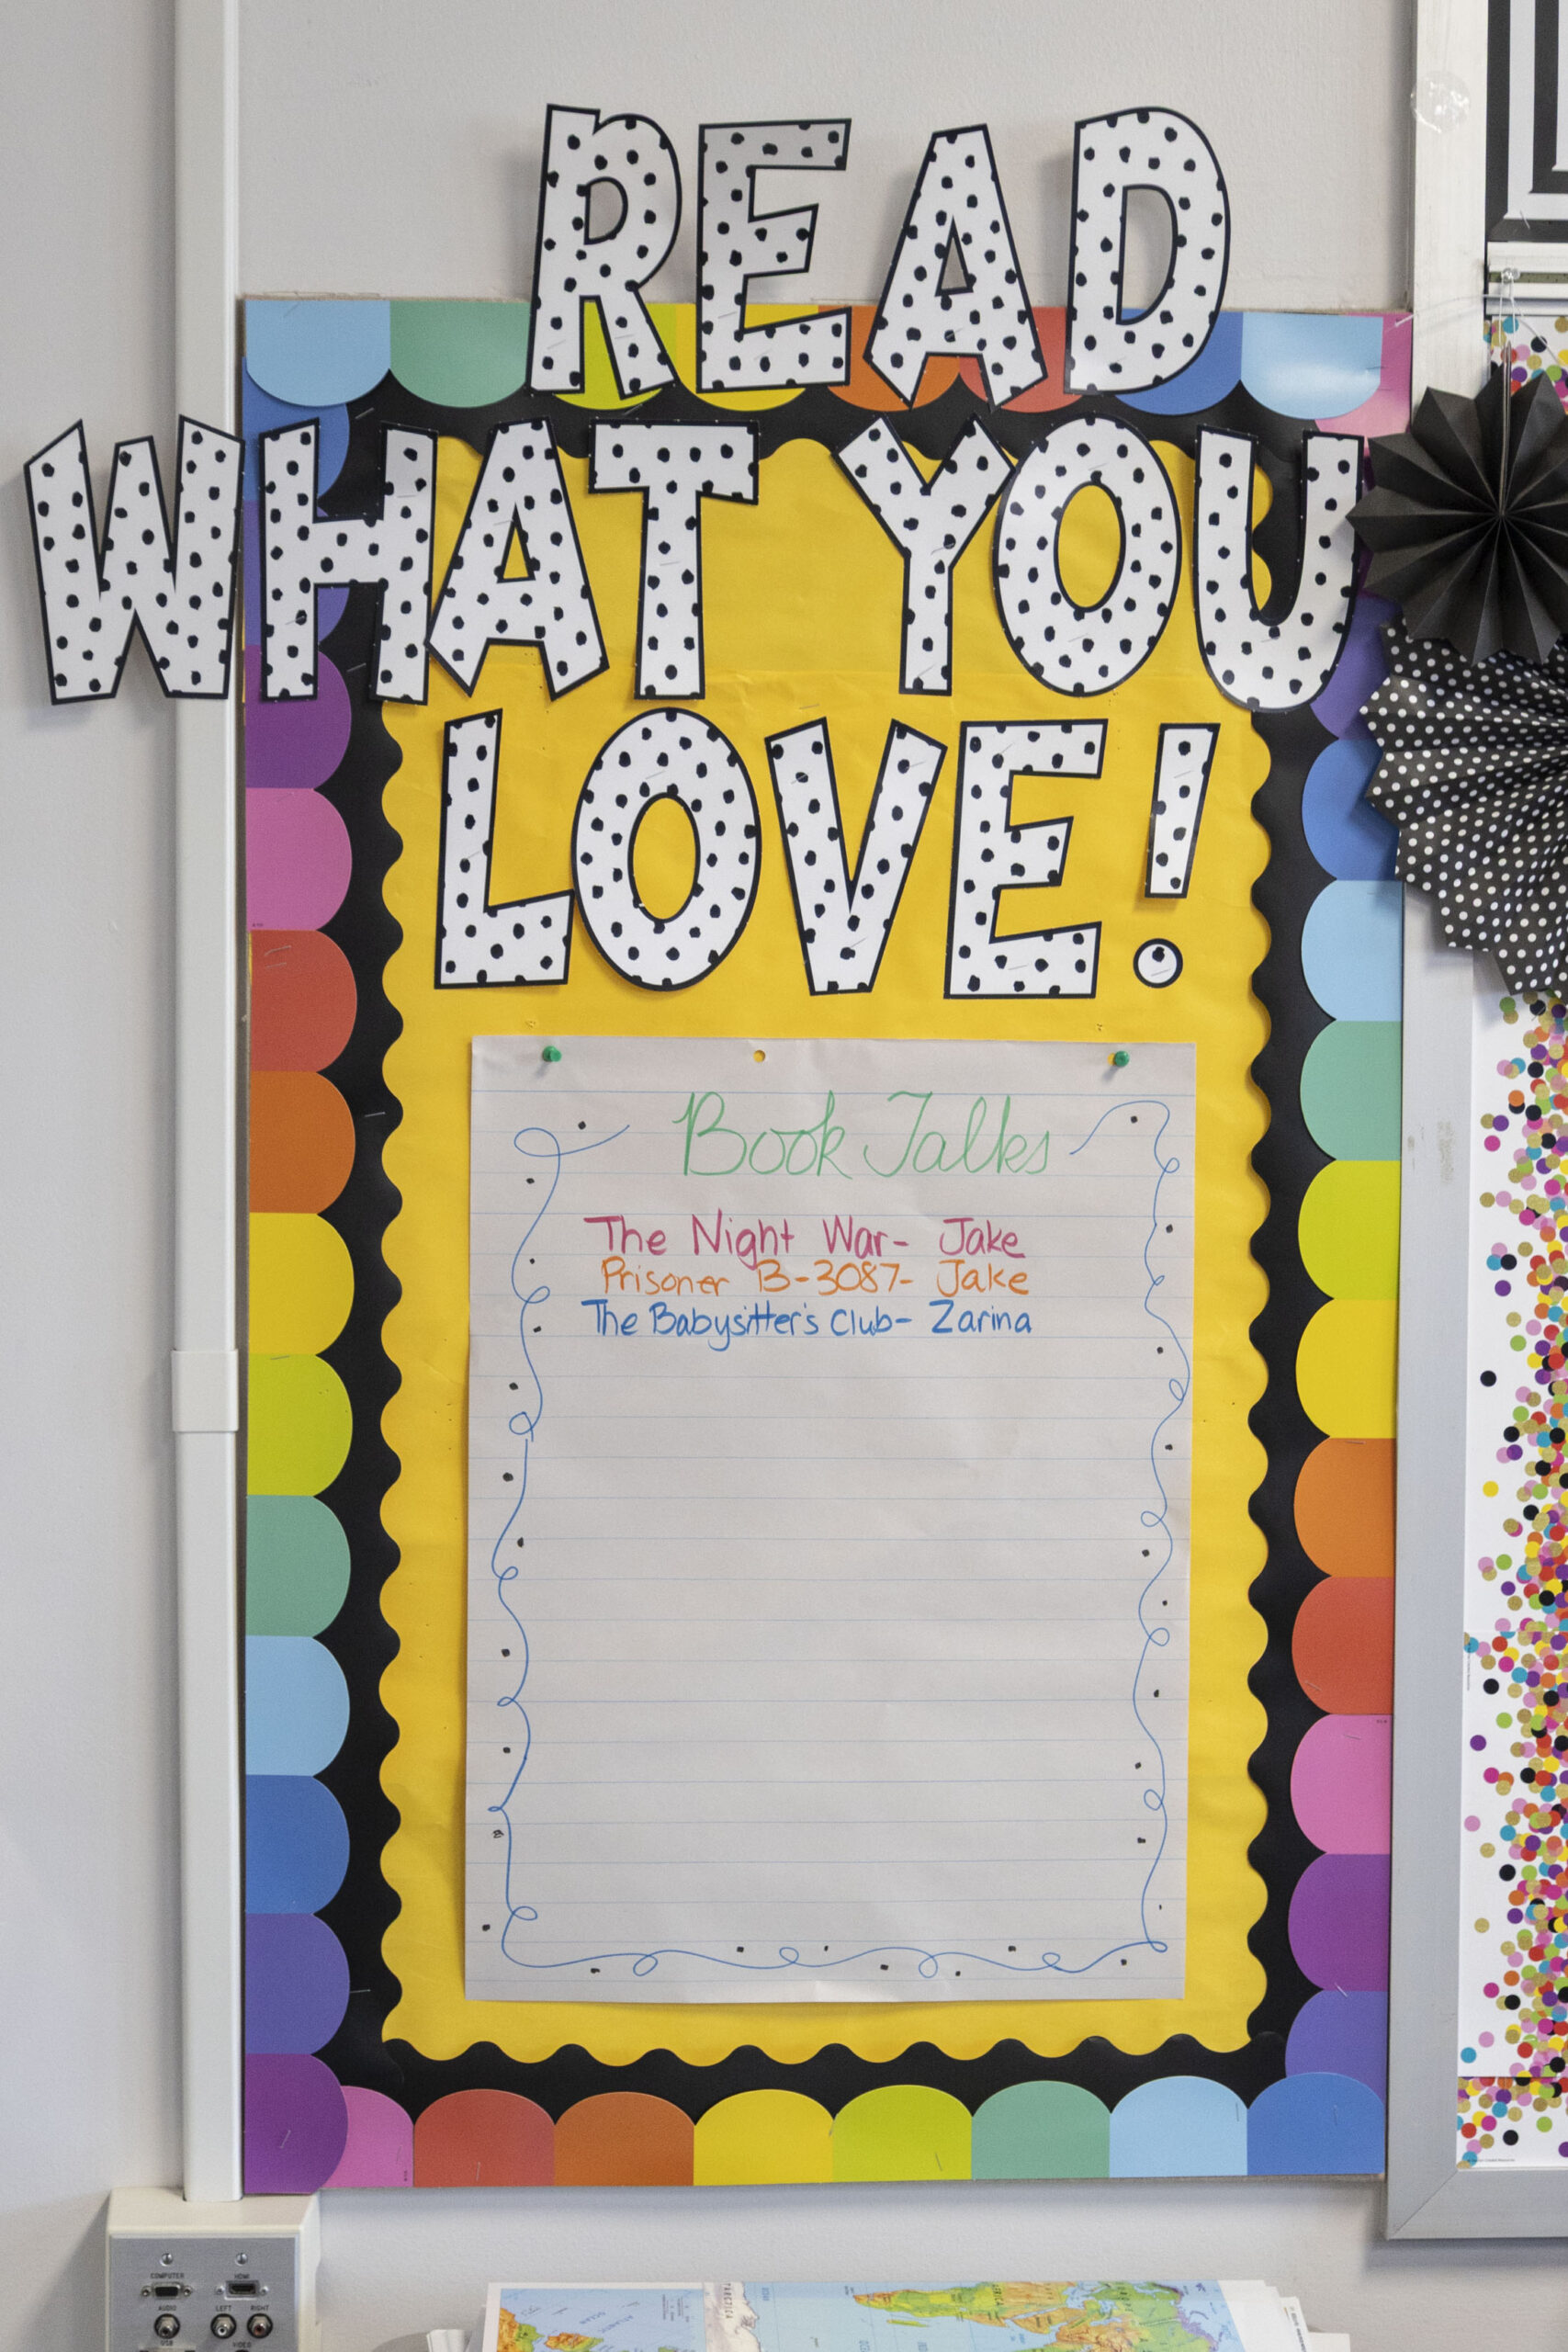 READ
WHAT YOU
LOVE!
Book Talks
The Night War- Jake
Prisoner B-3087- Jake
The Babysitter's Club- Zarina
COMPUTER
HDMI
AUDIO
LEFT
RIGHT
USB
VIDEO